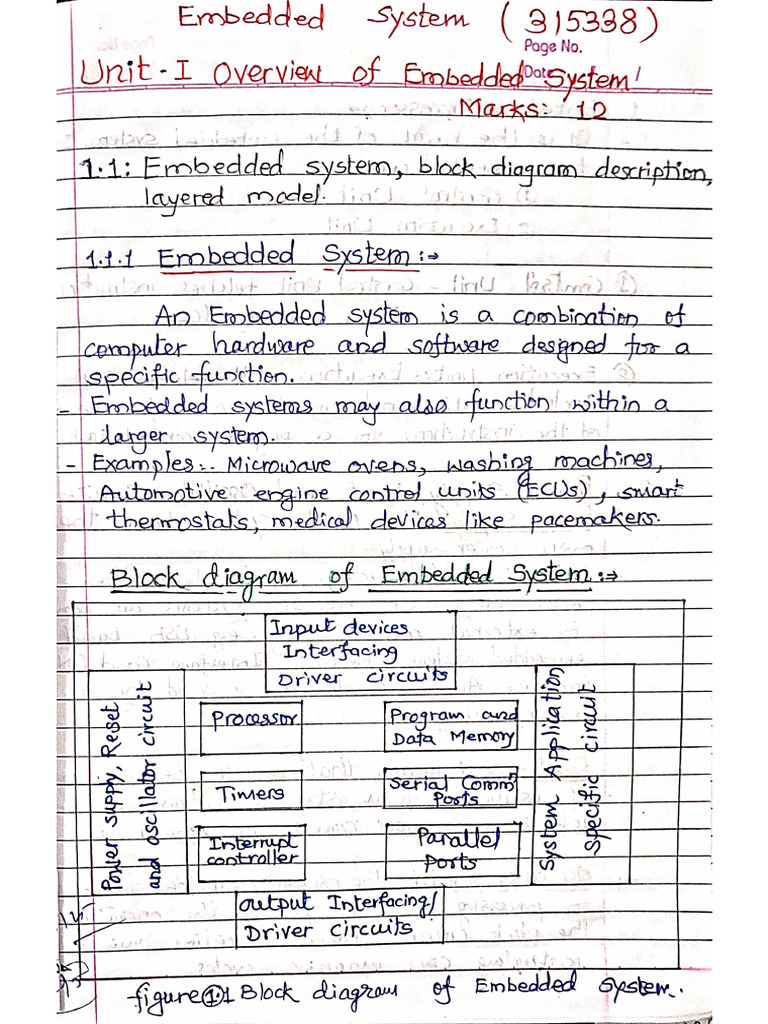 Embedded System (315338)
Page No.
Date
Unit-I Overview of Embedded System
Marks: 12
1.1: Embedded system, block diagram description,
layered model.
1.1.1 Embedded System:→
An Embedded system is a combination of
computer hardware and software designed for a
specific function.
- Embedded systems may also function within a
larger system.
- Examples:- Microwave ovens, washing machines,
Automotive engine control units (ECUs), smart
thermostats, medical devices like pacemakers.
Block diagram of Embedded System:→
Input devices
Interfacing
Driver circuits
Power supply, Reset
and oscillator circuit
Processor
Program and
Data Memory
Timers
Serial Commⁿ
Ports
Interrupt
controller
Parallel
Ports
System Application
Specific circuit
output Interfacing/
Driver Circuits
figure 1.1 Block diagram of Embedded System.